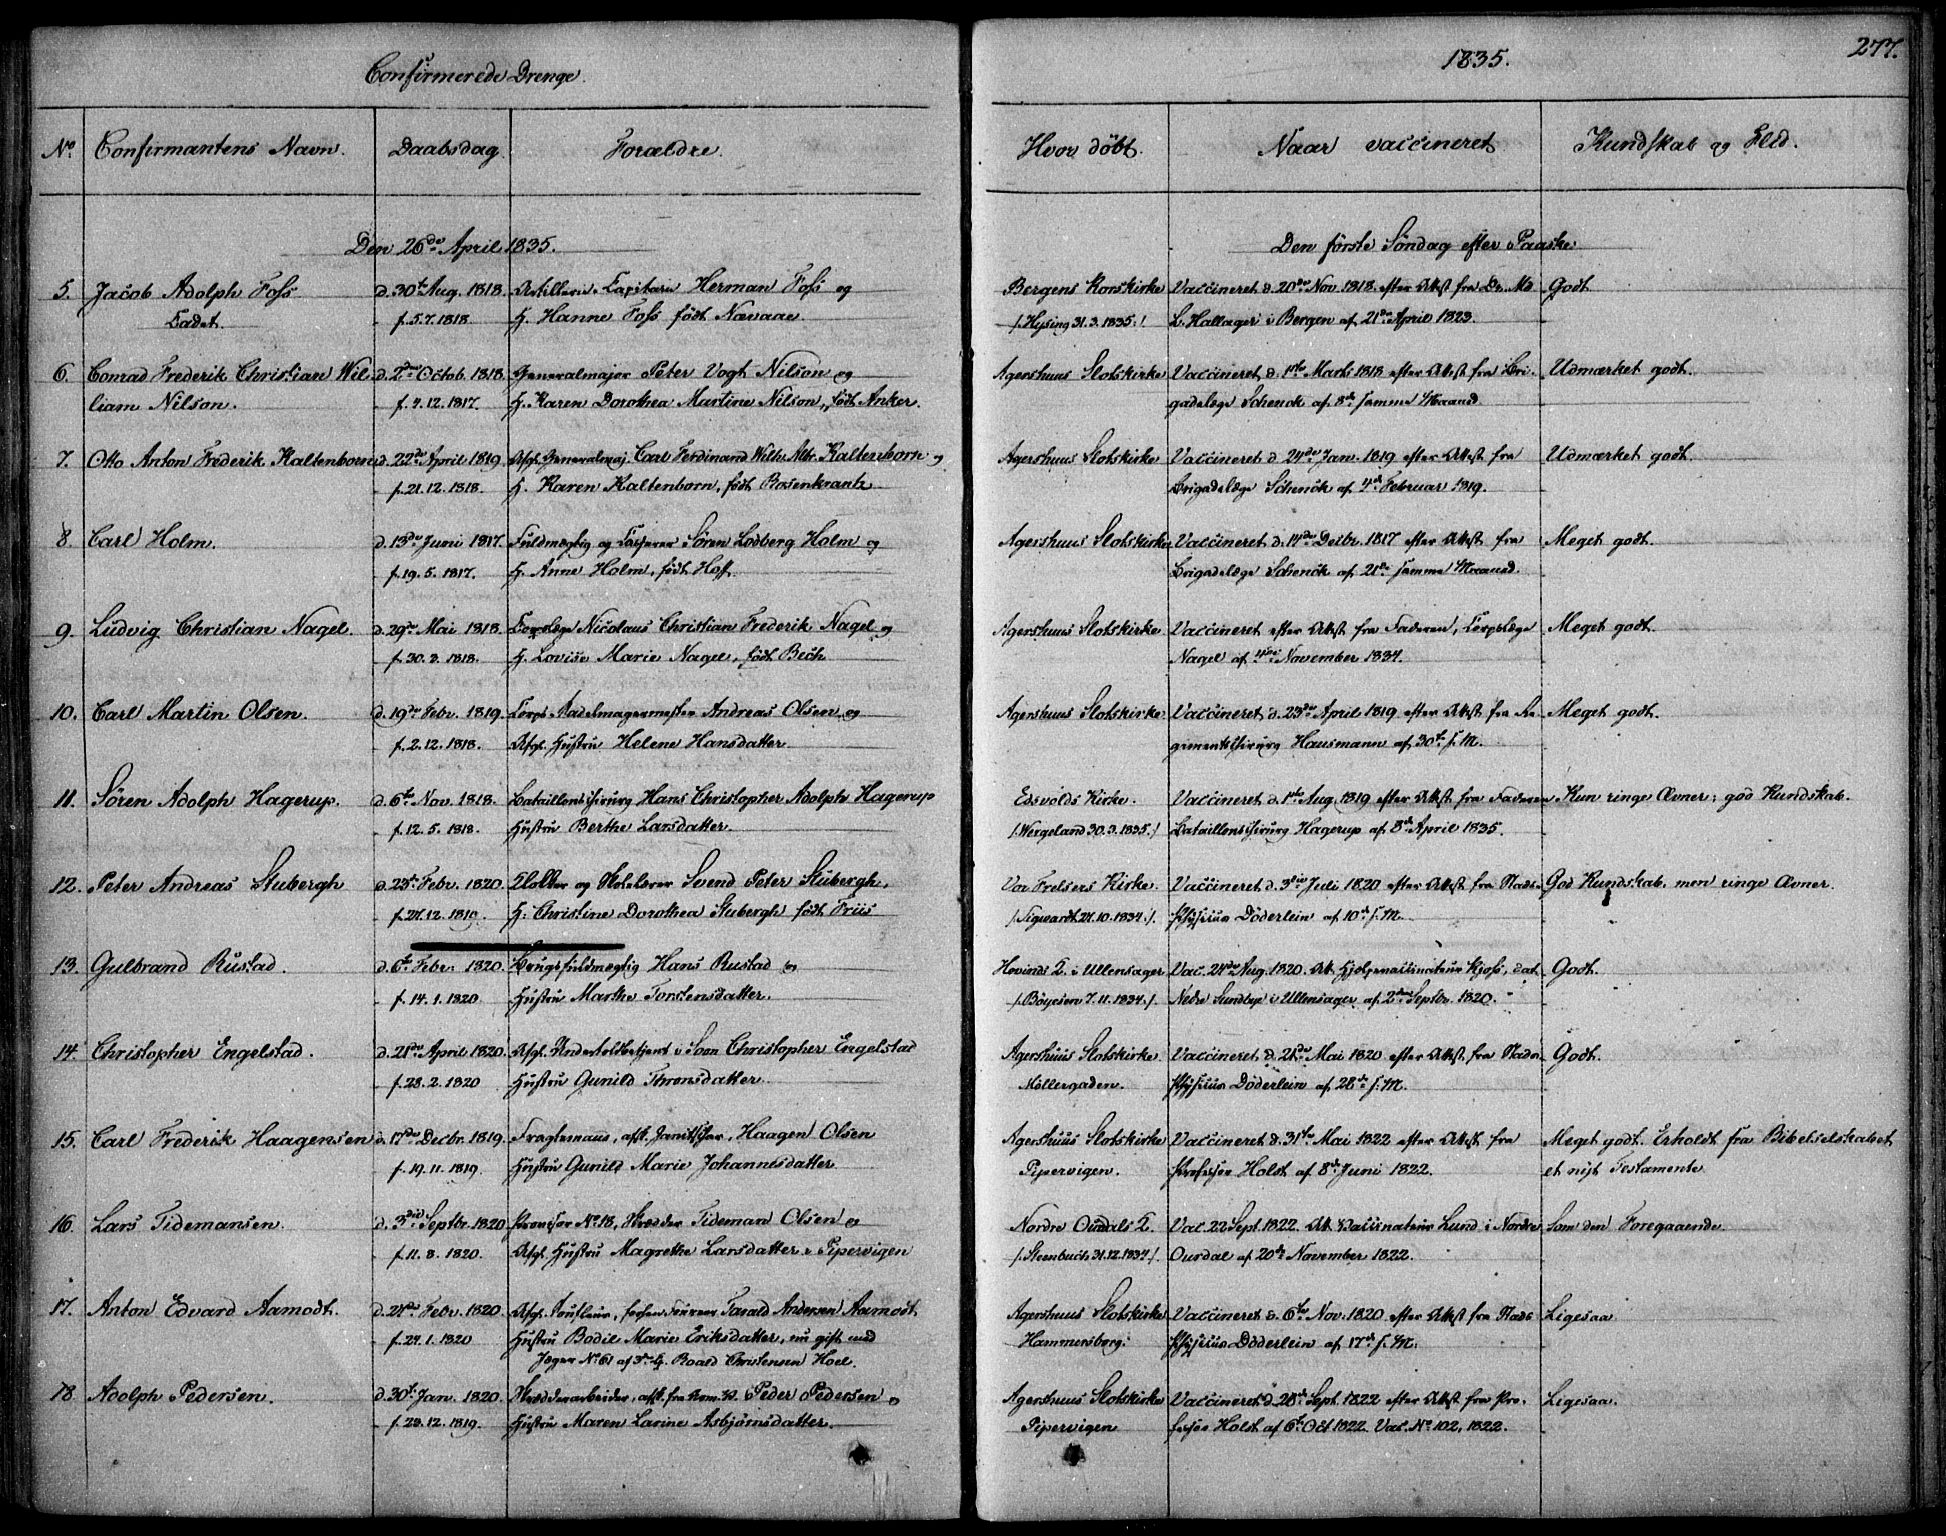 Confirmerede Drenge.
1835.
277.
No. Confirmantens Navn. Daabsdag. Forældre. Hvor döbt. Naar vaccineret Kundskab og Flid.
Den 26de April 1835. Den förste Söndag efter Paaske
5. Jacob Adolph Foss d. 30te Aug. 1818. Artillerie-Capitain Herman Foss og Bergens Korskirke Vaccineret d. 20de Nov. 1818. efter Attest fra Dr. Md Godt
Cadet. - f. 5.7.1818 H. Hanne Foss födt Nævaae /: Hysing 31.3.1835 :/ L. Hallager i Bergen af 21de April 1823.
6. Conrad Frederik Christian Wil- d. 2den Octob. 1818. Generalmajor Peter Vogt Nilson og Agershuus Slotskirke Vaccineret d. 1ste Marts 1818 efter Attest fra Bri- Udmærket godt.
liam Nilson. - f. 4.12.1817. H. Karen Dorothea Martine Nilson, födt Anker. gadelæge Schenck af 8de samme Maaned
7. Otto Anton Frederik Kaltenborn d. 22de April 1819. Afg. Generalmaj. Carl Ferdinand Wilh. Alb. Kaltenborn og Agershuus Slotskirke Vaccineret d. 24de Jan. 1819 efter Attest fra Udmærket godt.
- f. 21.12.1818. H. Karen Kaltenborn, födt Rosenkrantz Brigadelæge Schenck af 4de Februar 1819.
8. Carl Holm. d. 13de Juni 1817. Fuldmægtig og Casserer Sören Lodberg Holm og Agershuus Slotskirke Vaccineret d. 14de Decbr. 1817 efter Attest fra Meget godt.
- f. 19.5.1817. H. Anne Holm, födt Hoff Brigadelæge Schenck af 21de samme Maaned.
9. Ludvig Christian Nagel. d. 29de Mai 1818. Corpslæge Nicolaus Christian Frederik Nagel og Agershuus Slotskirke Vaccineret efter Attest fra Faderen, Corpslæge Meget godt.
- f. 30.3.1818. H. Lovise Marie Nagel, födt Bech Nagel af 4de November 1834.
10. Carl Martin Olsen. d. 19de Febr. 1819. Corps-Sadelmagermester Andreas Olsen og Agershuus Slotskirke Vaccineret d. 23de April 1819 efter Attest fra Re- Meget godt.
- f. 2.12.1818. Afg. Hustru Helene Hansdatter gimentschirurg Hausmann af 30te s. M.
11. Sören Adolph Hagerup. d. 6te Nov. 1818. Bataillonschirurg Hans Christopher Adolph Hagerup Edsvolds Kirke. Vaccineret d. 1ste Aug. 1819 efter Attest fra Faderen Kun ringe Evner; god Kundskab.
- f. 12.5.1818. Hustru Berthe Larsdatter. /: Wergeland 30.3.1835 :/ Bataillonschirurg Hagerup af 8de April 1835.
12. Peter Andreas Stubergh d. 23de Febr. 1820. Klokker og Skolelærer Svend Peter Stubergh. Vor Frelsers Kirke. Vaccineret d. 3die Juli 1820 efter Attest fra Stads- God Kundskab, men ringe Evner.
- f. 27.12.1819. H. Christine Dorothea Stubergh födt Friis /: Sigwardt 27.10.1834 :/. Physicus Döderlein af 10de s. M.
13. Gulbrand Rustad. d. 6te Febr. 1820 Brugsfuldmægtig Hans Rustad og Hovinds K. i Ullensager Vac. 24de Aug. 1820. Att. Hjelpevaccinateur Kjoss, dat. Godt.
- f. 14.1.1820 Hustru Marthe Torstensdatter. /: Böyesen 7.11.1834 :/. Nedre Sundbye i Ullensager af 2den Septbr. 1820.
14. Christopher Engelstad. d. 21de April 1820. Afg. Undertoldbetjent i Soon Christopher Engelstad Agershuus Slotskirke Vaccineret d. 21de Mai 1820 efter Attest fra Stads- Godt.
- f. 28.2.1820 Hustru Gunild Thronsdatter. Möllergaden. Physicus Döderlein af 28de s. M.
15. Carl Frederik Haagensen d. 17de Decbr. 1819. Fragtemand, afsk. Janitschar, Haagen Olsen Agershuus Slotskirke Vaccineret d. 31te Mai 1822 efter Attest fra Meget godt. Erholdt fra Bibelselskabet
- f. 19.11.1819. Hustru Gunild Marie Johannesdatter Pipervigen. Professor Holst af 8de Juni 1822. et nyt Testamente
16. Lars Tidemansen. d. 3die Septbr. 1820 Provisor No. 18, Skrædder Tideman Olsen og Nordre Ourdals K. Vac. 22 Sept. 1822. Att. Vaccinateur Lund i Nordre Som den Foregaaende.
- f. 11.8.1820. Afg. Hustru Magrethe Larsdatter i Pipervigen /: Steenbuch 31.12.1834 :/ Ourdal af 20de November 1822.
17. Anton Edvard Aamodt. d. 24de Febr. 1820 Afg. Tarald Andersen Aamodt. Agershuus Slotskirke Vaccineret d. 6te Nov. 1820 efter Attest fra Stads Ligesaa
- f. 24.1.1820 Hustru Bodil Marie Eriksdatter, nu gift med Hammersborg. Physicus Döderlein af 17de s. M.
Jæger No. 61 af 3de Roald Christensen Hoel.
18. Adolph Pedersen. d. 30te Jan. 1820. Skrædderarbeider, afsk. fra Peder Pedersen og Agershuus Slotskirke Vaccineret d. 28de Sept. 1822 efter Attest fra Pro- Ligesaa.
- f. 28.12.1819. Hustru Maren Larine Asbjørnsdatter. Pipervigen fessor Holst af 6te Oct 1822. Vac. No. 102, 1822.